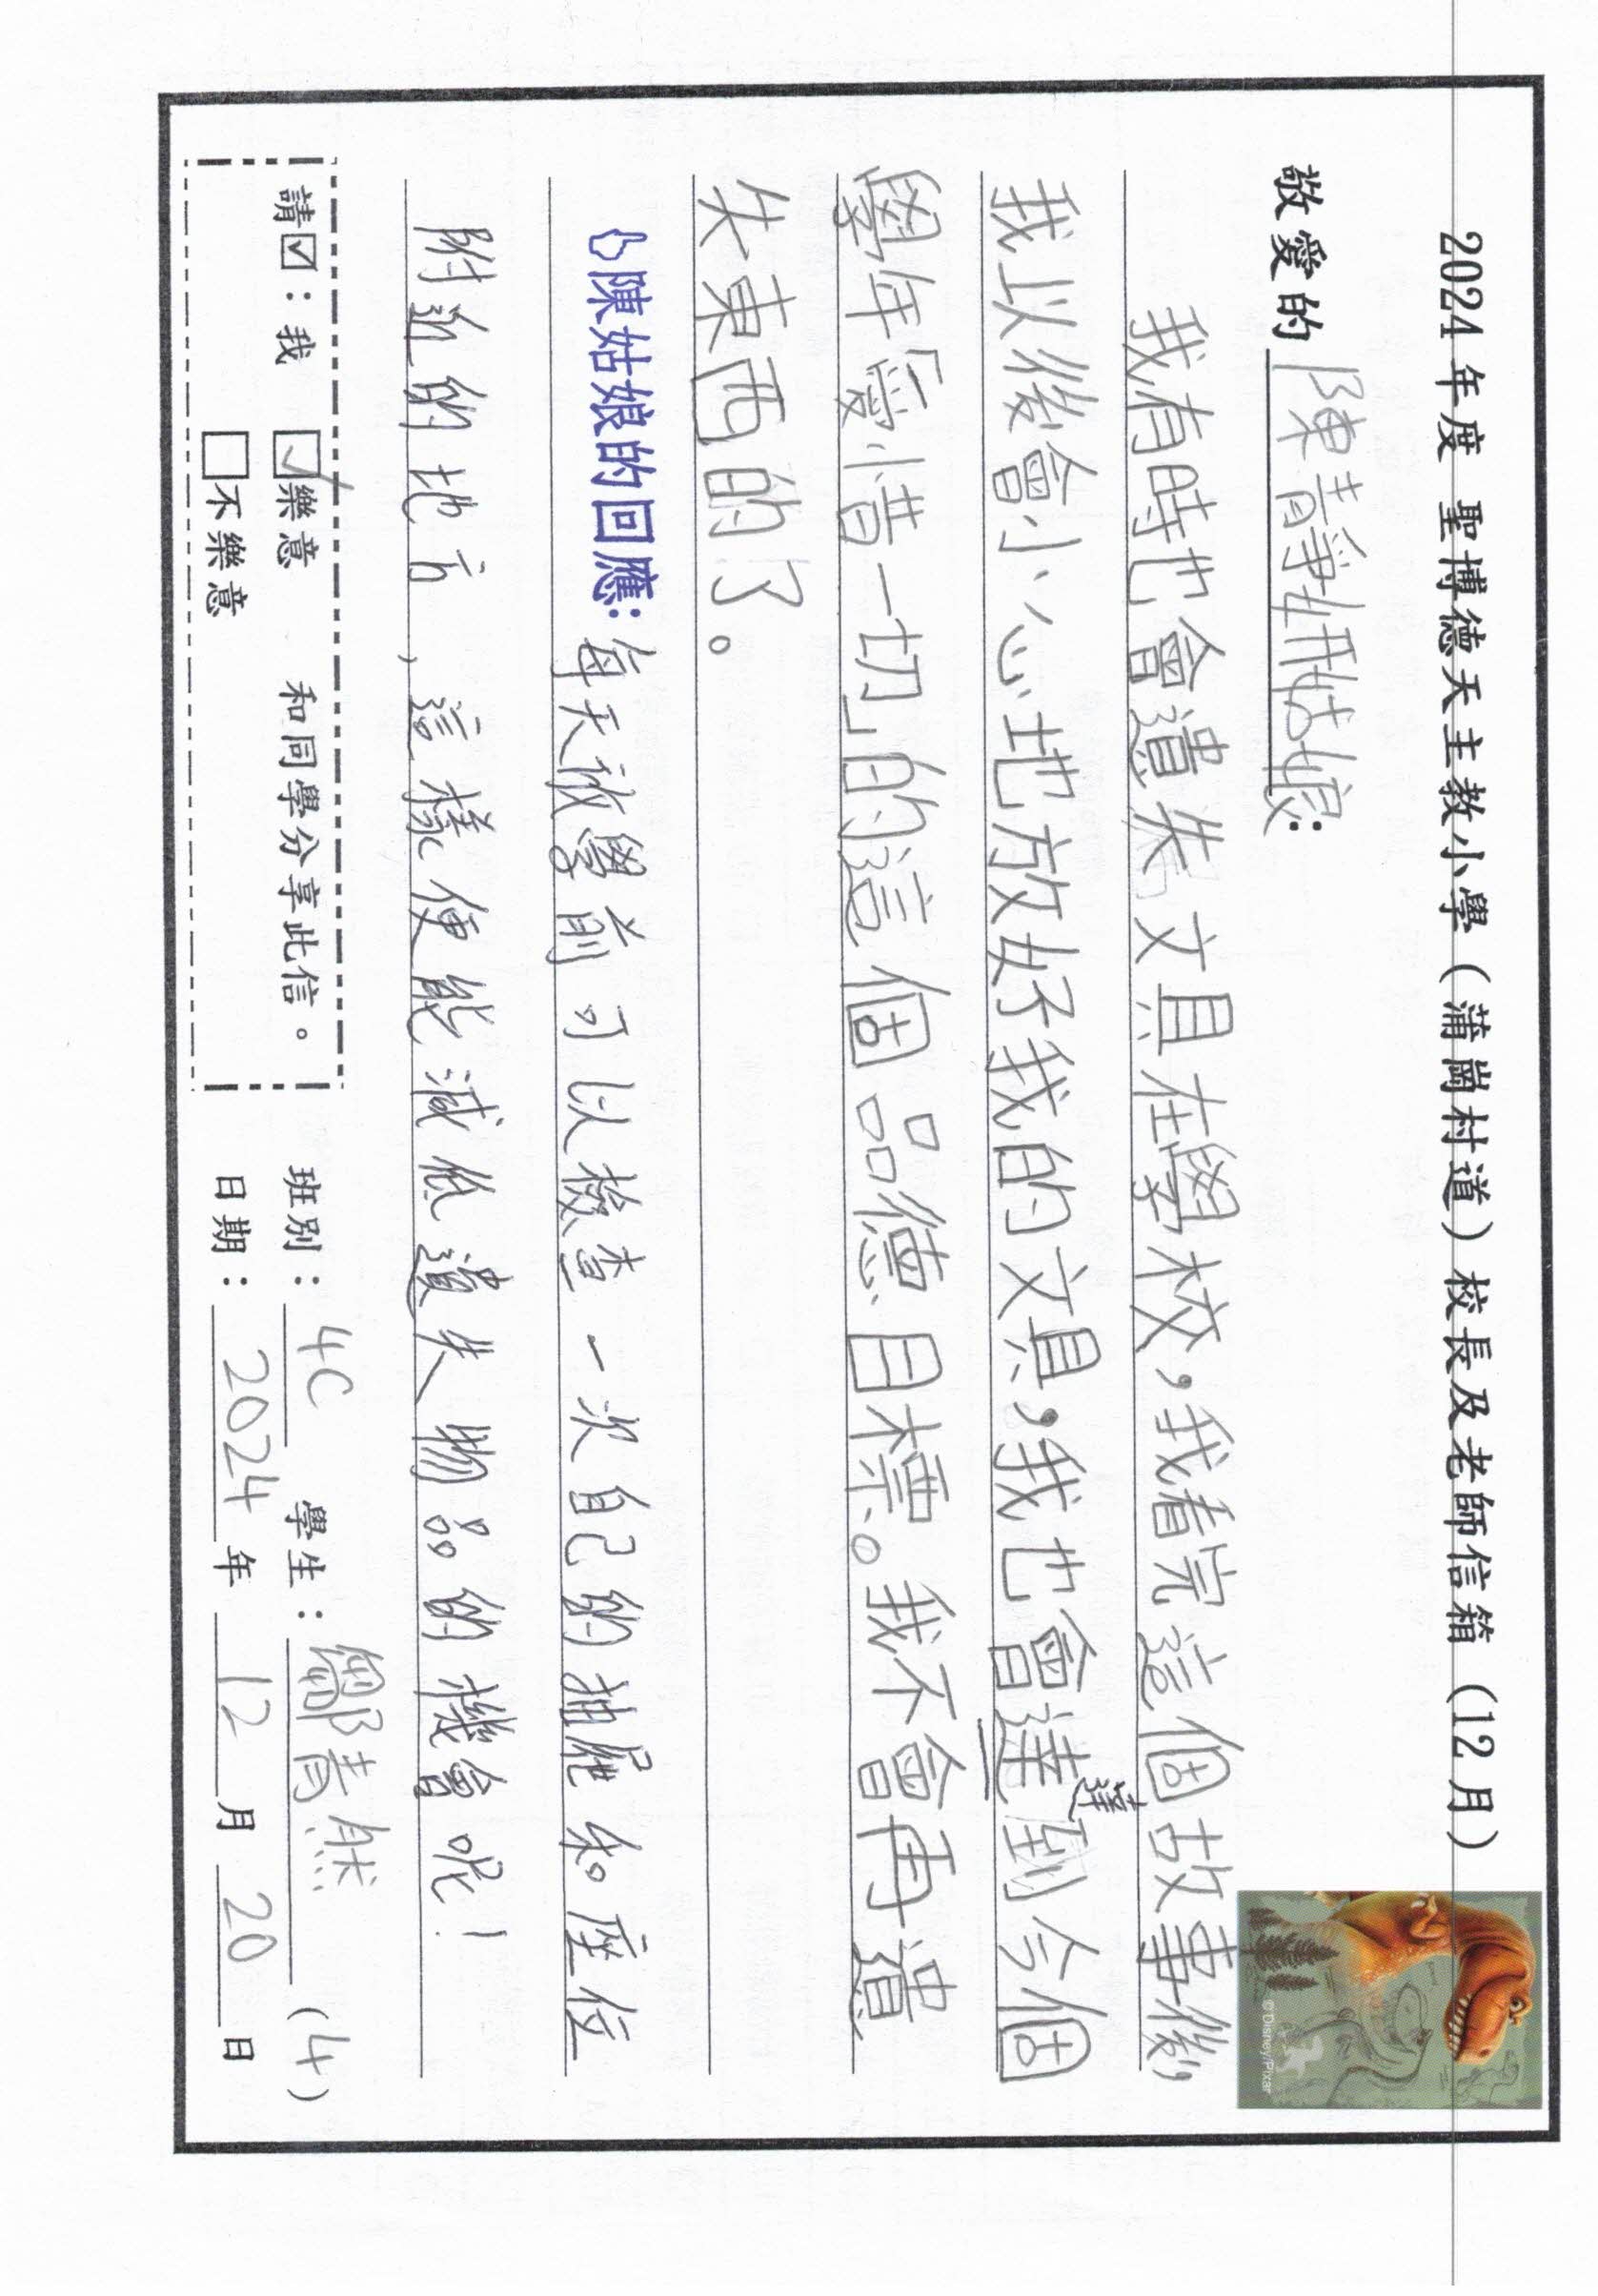 2024年度 聖博德天主教小學（蒲崗村道）校長及老師信箱（12月）
敬愛的 陳靜姍姑娘:
我有時也會遺失文具在學校，我看完這個故事後
我以後會小心地放好我的文具，我也會達到今個
達
學年「愛惜一切」的這個品德目標。我不會再遺
失東西的了。
陳姑娘的回應: 每天放學前可以檢查一次自己的抽屜和座位
附近的地方,這樣便能減低遺失物品的機會呢!
請☑：我 ☑樂意 和同學分享此信。
□不樂意
班別：4C 學生：鄒青燃 (4)
日期：2024年12月20日
©Disney/Pixar